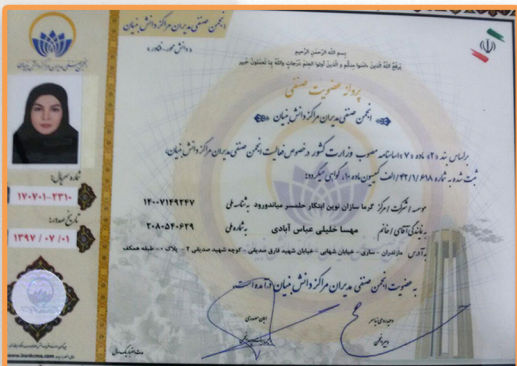 انجمن صنفی مدیران مراکز دانش بنیان
«دانش محور - فناور»
بسم الله الرحمن الرحیم
یرفع الله الذین آمنوا منکم و الذین اوتوا العلم درجات والله بما تعملون خبیر
پروانه عضویت صنفی
انجمن صنفی مدیران مراکز دانش بنیان
براساس بند «۲» ماده «۷» اساسنامه مصوب وزارت کشور درخصوص فعالیت انجمن صنفی مدیران مراکز دانش بنیان
ثبت شده به شماره ۲۲/۱/۶۱۸/الف کمیسیون ماده ۱۰، گواهی میگردد:
موسسه / شرکت / مرکز گرما سازان نوین ابتکار جلمسر میاندورود به شناسه ملی ۱۴۰۰۷۱۴۹۲۴۷
به نمایندگی آقای / خانم مهسا خلیلی عباس آبادی به شماره ملی ۲۰۸۰۵۴۰۶۲۹
به آدرس مازندران - ساری - خیابان شهابی - خیابان شهید قارن صدیقی - کوچه شهید صدیقی ۲ - پلاک ۰ - طبقه همکف
به عضویت انجمن صنفی مدیران مراکز دانش بنیان درآمده است.
شماره سریال:
۱۷۰۷۰۱-۲۳۱۰
تاریخ صدور:
۱۳۹۷ / ۰۷ / ۰۱